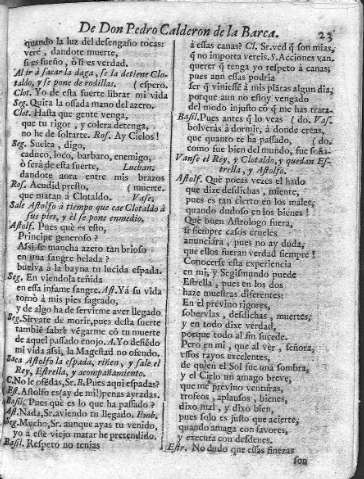 De Don Pedro Calderon de la Barca. 23
quando la luz del desengaño tocas:
verè, dandote muerte,
si es sueño, ò si es verdad.
Al ir à sacar la daga, se la detiene Clo-
taldo, y se pone de rodillas. ( espero.
Clot. Yo de esta suerte librar mi vida
Seg. Quita la osada mano del azero.
Clot. Hasta que gente venga,
que tu rigor, y colera detenga,
no he de soltarte. Ros. Ay Cielos!
Seg. Suelta, digo,
caduco, loco, barbaro, enemigo,
ò serà de esta suerte, Luchan.
dandote aora entre mis brazos
Ros. Acudid presto, ( muerte.
que matan à Clotaldo. Vase,
Sale Astolfo à tiempo que cae Clotaldo à
sus pies, y èl se pone enmedio.
Astolf. Pues què es esto,
Principe generoso?
Assi se mancha azero tan brioso
en una sangre helada?
buelva à la bayna tu lucida espada.
Seg. En viendola teñida
en essa infame sangre. Ast. Yà su vida
tomò à mis pies sagrado,
y de algo ha de servirme aver llegado
Seg. Sirvate de morir, pues desta suerte
tambiè sabrè vègarme cõ tu muerte
de aquel passado enojo. A. Yo defiēdo
mi vida assi, la Magestad no ofendo.
Saca Astolfo la espada, riñen, y sale el
Rey, Estrella, y acompañamiento.
C. No le ofedas, Sr. R. Pues aqui espadas?
Es. Astolfo es (ay de mi!) penas ayradas.
Basil. Pues què es lo que ha passado?
Ast. Nada, Sr. aviendo tu llegado. Emb.
Seg. Mucho, Sr. aunque ayas tu venido,
yo à esse viejo matar he pretendido.
Basil. Respeto no tenias
à essas canas? Cl. Sr. ved q̃ son mias,
q̃ no importa vereis. S. Acciones van.
querer q̃ tenga yo respeto à canas;
pues aun essas podria
ser q̃ viniesse à mis plãtas algun dia,
porque aun no estoy vengado
del modo injusto cõ q̃ me has trata-
Basil. Pues antes q̃ lo veas ( do. Vas.
bolveràs à dormir, à donde creas,
que quanto te ha passado, ( do.
como fue bien del mundo, fue soña-
Vanse el Rey, y Clotaldo, y quedan Es-
trella, y Astolfo.
Astolf. Què pocas vezes el hado
que dize desdichas, miente,
pues es tan cierto en los males,
quando dudoso en los bienes!
Què buen Astrologo fuera,
si siempre casos crueles
anunciàra, pues no ay duda,
que ellos fueran verdad siempre!
Conocerse esta experiencia
en mi, y Segismundo puede
Estrella, pues en los dos
haze muestras diferentes:
En èl previno rigores,
sobervias, desdichas, muertes,
y en todo dixe verdad,
porque todo al fin sucede.
Pero en mi, que al ver, señora,
essos rayos excelentes,
de quien el Sol fue una sombra,
y el Cielo un amago breve,
que me previno venturas,
trofeos, aplausos, bienes,
dixo mal, y dixo bien,
pues solo es justo que acierte,
quando amaga con favores,
y executa con desdenes.
Estr. No dudo que essas finezas
son